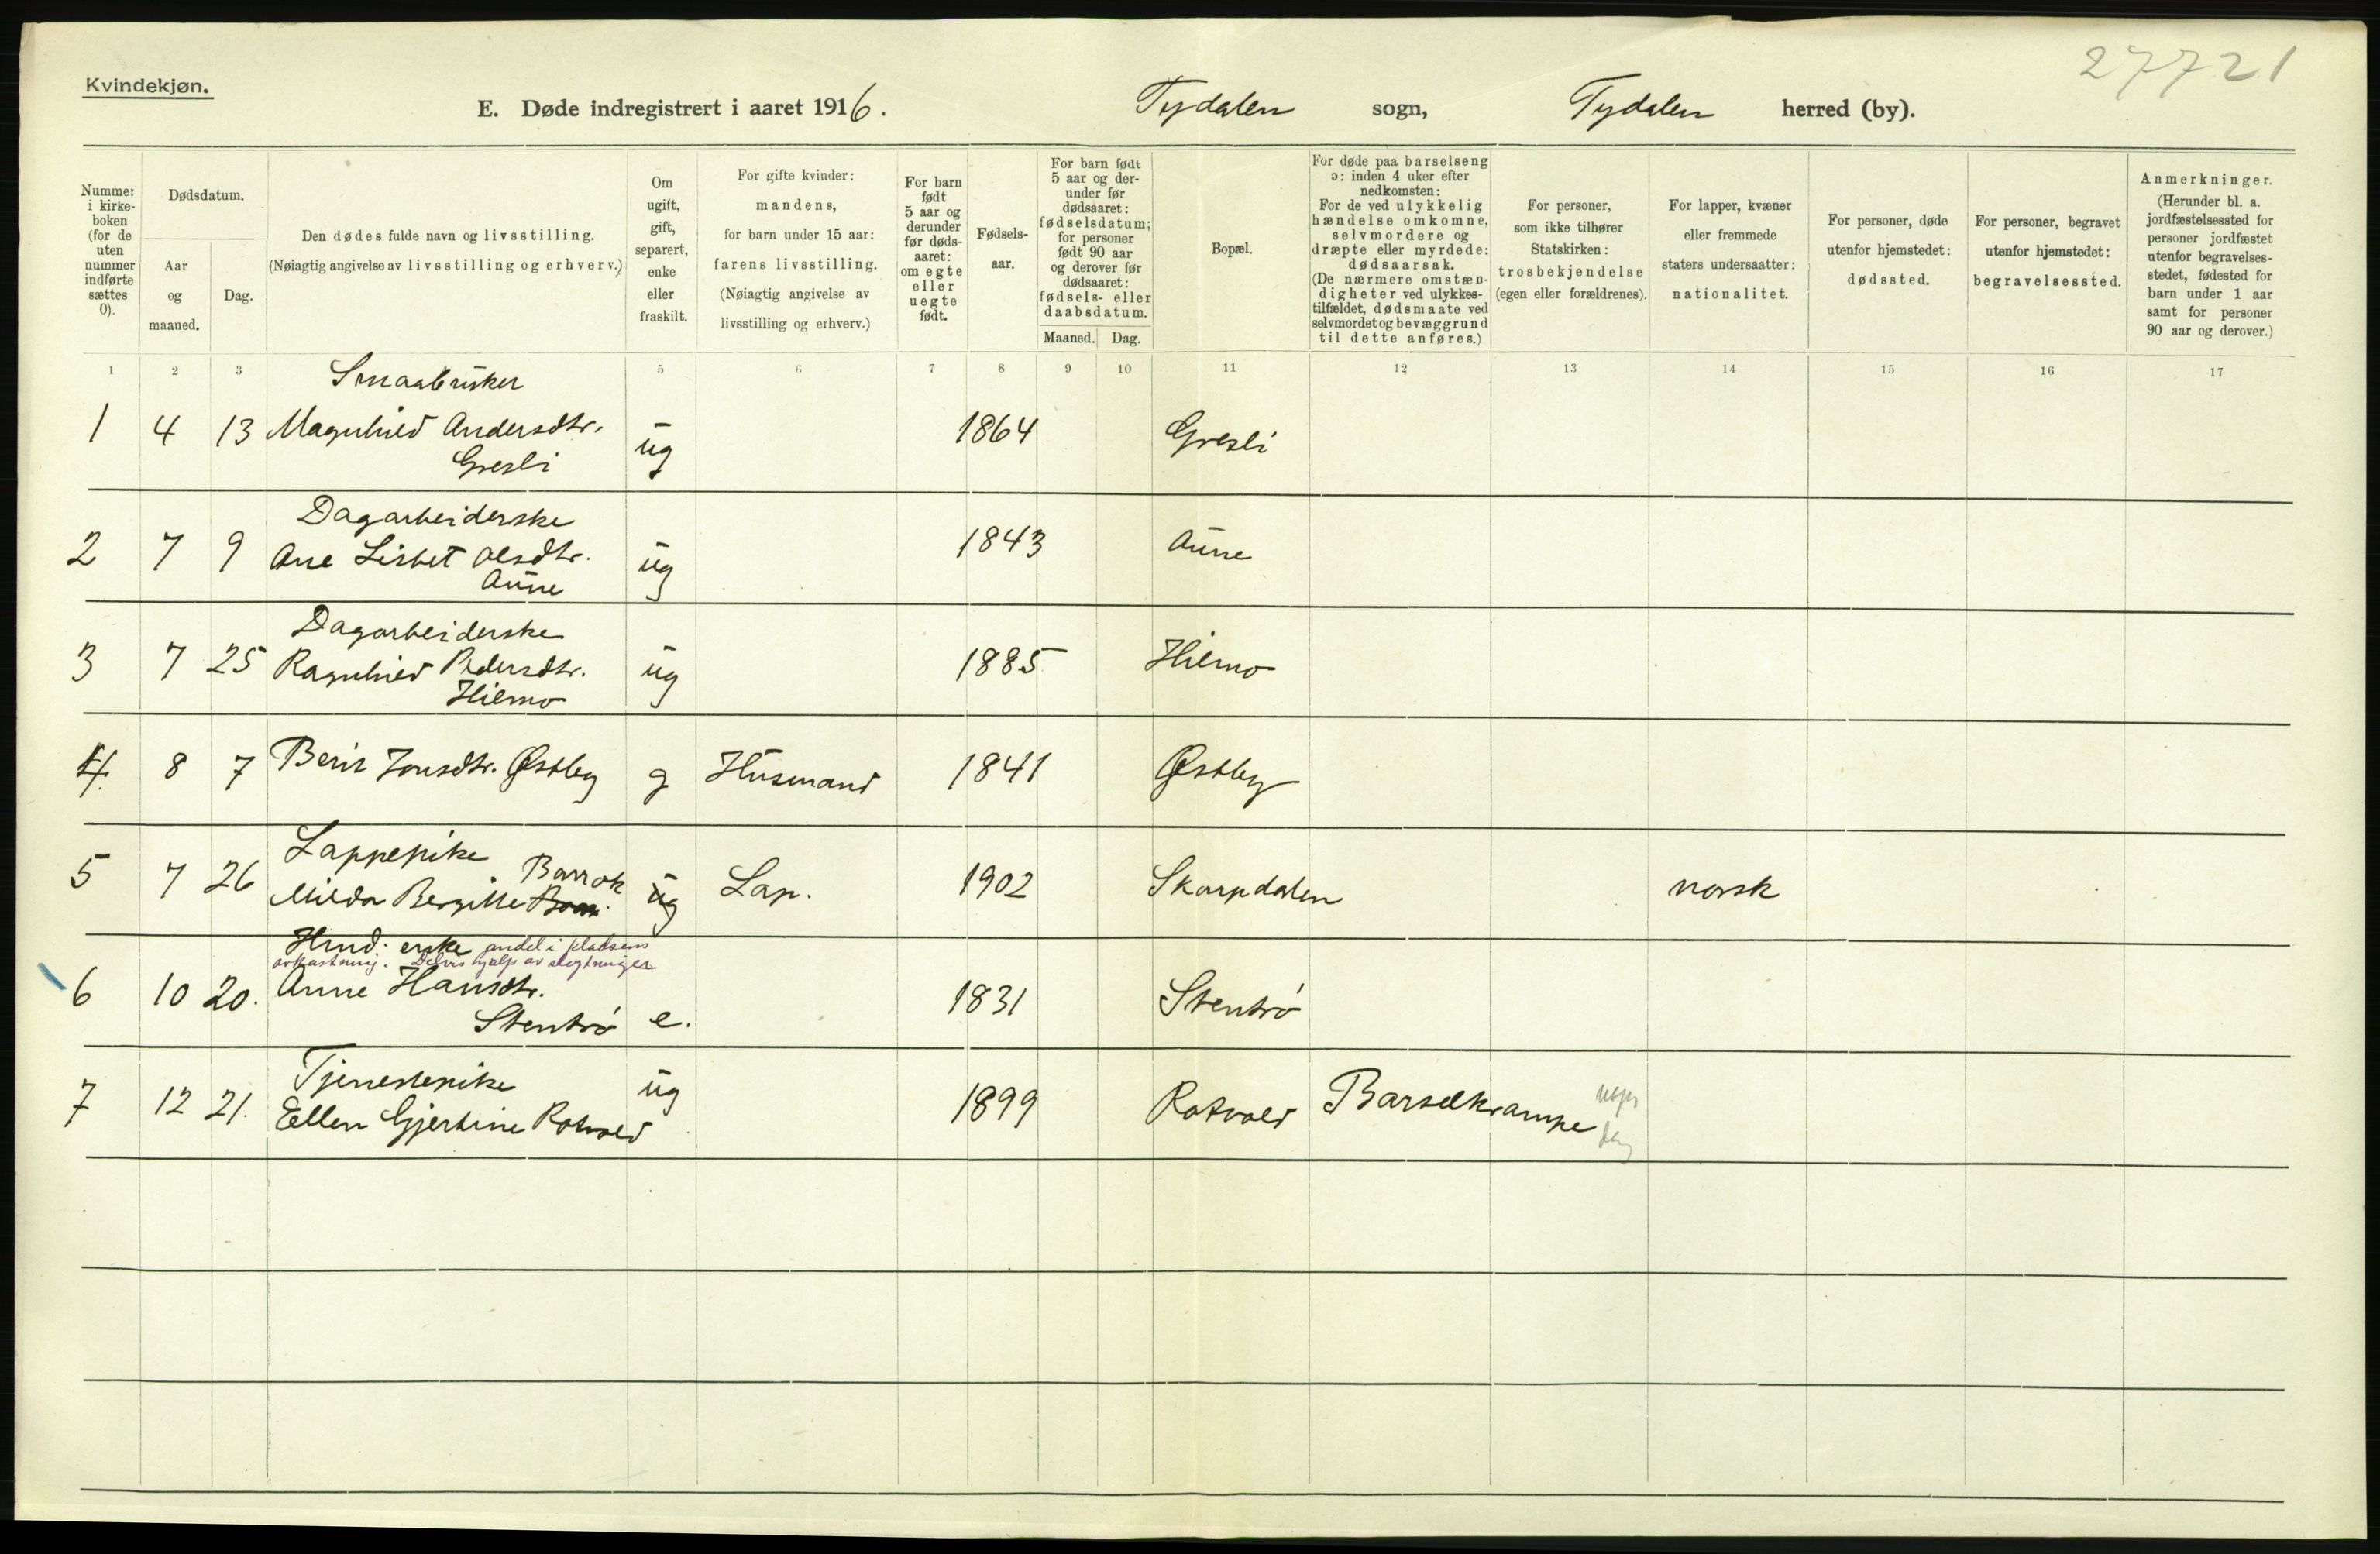 27721
Kvindekjøn.
E. Døde indregistrert i aaret 1916. Tydalen sogn, Tydalen herred (by).
Nummer i kirkeboken (for de uten nummer indførte sættes 0).
Dødsdatum.
Aar og maaned.
Dag.
Den dødes fulde navn og livsstilling.
(Nøiagtig angivelse av livsstilling og erhverv.)
Om ugift, gift, separert, enke eller fraskilt.
For gifte kvinder: mandens, for barn under 15 aar: farens livsstilling.
(Nøiagtig angivelse av livsstilling og erhverv.)
For barn født 5 aar og derunder før dødsaaret: om egte eller uegte født.
Fødselsaar.
For barn født 5 aar og derunder før dødsaaret: fødselsdatum; for personer født 90 aar og derover før dødsaaret: fødsels- eller daabsdatum.
Maaned. Dag.
Bopæl.
For døde paa barselseng ɔ: inden 4 uker efter nedkomsten:
For de ved ulykkelig hændelse omkomne, selvmordere og dræpte eller myrdede: dødsaarsak.
(De nærmere omstændigheter ved ulykkestilfældet, dødsmaate ved selvmordet og bevæggrund til dette anføres.)
For personer, som ikke tilhører Statskirken: trosbekjendelse (egen eller forældrenes).
For lapper, kvæner eller fremmede staters undersaatter: nationalitet.
For personer, døde utenfor hjemstedet: dødssted.
For personer, begravet utenfor hjemstedet: begravelsessted.
Anmerkninger.
(Herunder bl. a. jordfæstelsessted for personer jordfæstet utenfor begravelsesstedet, fødested for barn under 1 aar samt for personer 90 aar og derover.)
1 2 3 5 6 7 8 9 10 11 12 13 14 15 16 17
Smaabruker
1 4 13 Magnhild Andersdtr. ug 1864 Gresli
Gresli
Dagarbeiderske
2 7 9 Ane Lisbet Olsdtr. ug 1843 Aune
Aune
Dagarbeiderske
3 7 25 Ragnhild Pedersdtr. ug 1885 Hilmo
Hilmo
4 8 7 Berit Jonsdtr. Østby g Husmand 1841 Østby
Lappepike
Barrok
5 7 26 Milda Bergitte ug Lap. 1902 Skarpdalen norsk
Hmd. enke andel i pladsens
avkastning. Delvis hjælp av slegtninger
6 10 20. Anne Hansdtr. 1831 Stentrø
Stentrø e.
Tjenestepike ug
7 12 21. Ellen Gjertine Rotvold 1899 Rotvold Barselkrampe